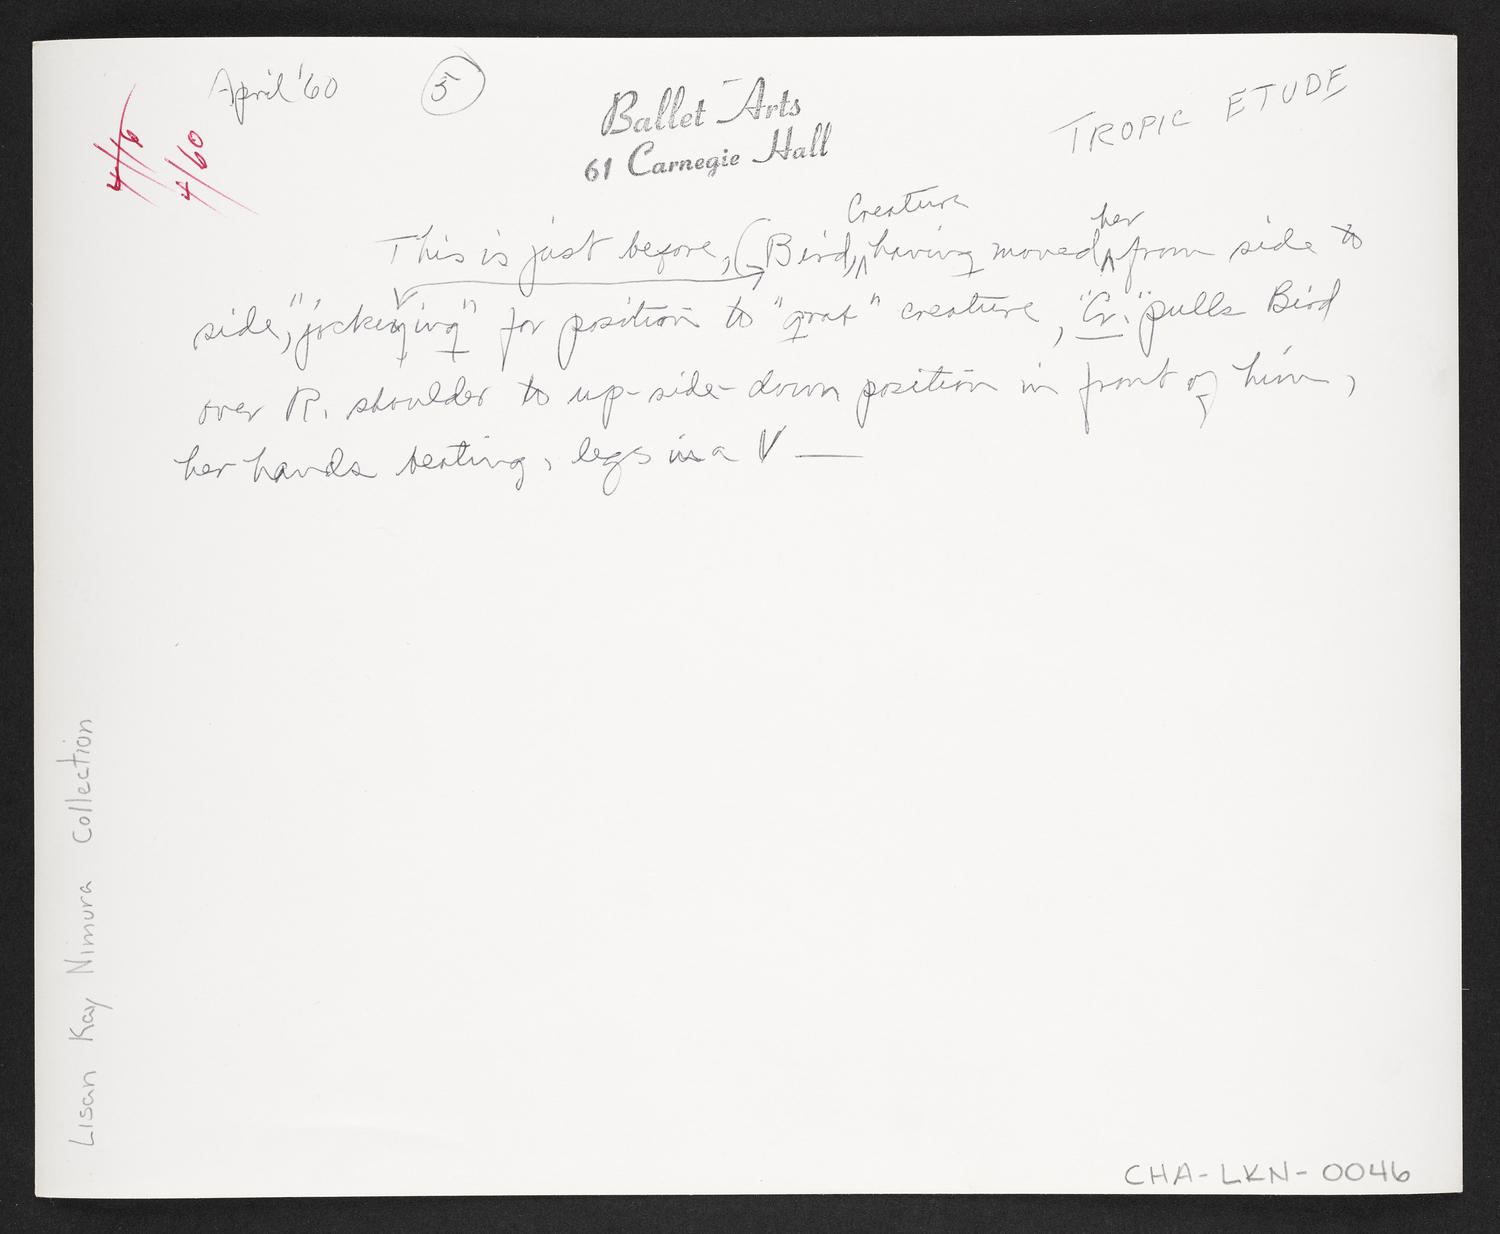 April '60
5
Ballet Arts
61 Carnegie Hall
TROPIC ETUDE
4/60
Creature her
This is just before, (Bird, having moved from side to
side, "jockeying" for position to creature, "Cr." pulls Bird
over R. shoulder to up-side-down position in front of him,
her hands beating, legs in a V —
Lisan Kay Nimura Collection
CHA-LKN-0046